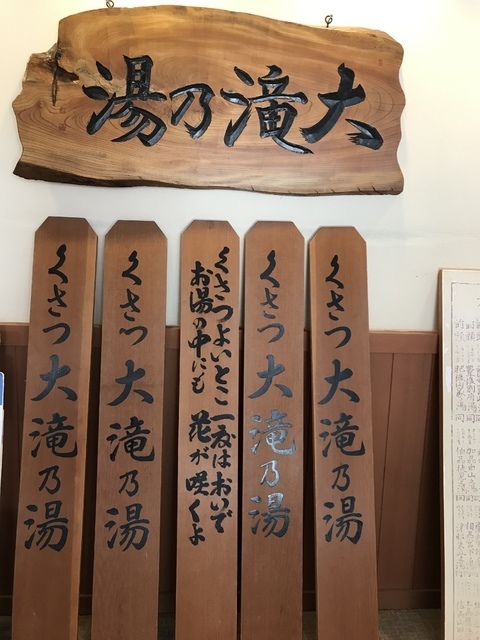 大滝乃湯
くさつ大滝乃湯
くさつよいとこ一度はおいで
お湯の中にも花が咲くよ
くさつ大滝乃湯
くさつ大滝乃湯
くさつ大滝乃湯